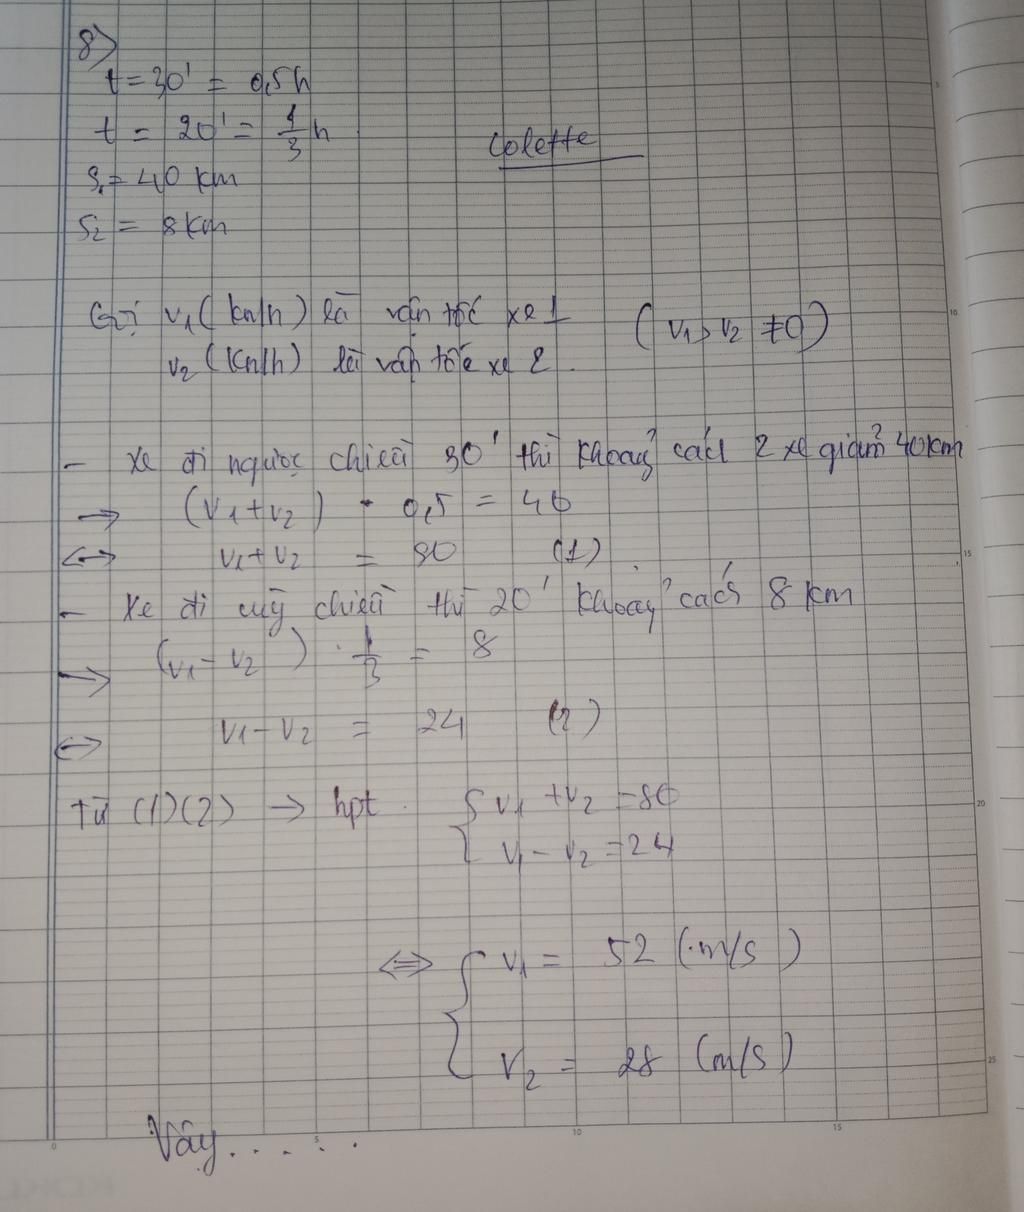 8)
t = 30' = 0,5h
t = 20' = 1/3 h
Colette
S₁ = 40 km
S₂ = 8km
Gọi v₁ (km/h) là vận tốc xe 1
(v₁ > v₂ ≠ 0)
v₂ (km/h) là vận tốc xe 2.
- Xe đi ngược chiều 30' thì khoảng cách 2 xe giảm 40km
→ (v₁ + v₂) · 0,5 = 40
<-> v₁ + v₂ = 80 (1)
- Xe đi cùg chiều thì 20' khoảng cách 8 km
→ (v₁ - v₂) · 1/3 = 8
<-> v₁ - v₂ = 24 (2)
từ (1)(2) → hpt { v₁ + v₂ = 80
v₁ - v₂ = 24
⇔ { v₁ = 52 (m/s)
v₂ = 28 (m/s)
Vậy......
5
10
15
20
25
0
5
10
15